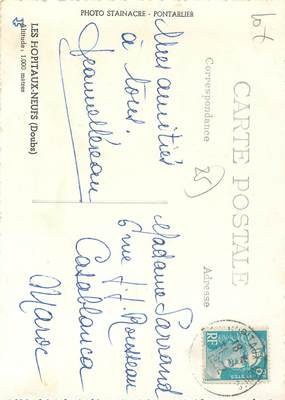 PHOTO STAINACRE - PONTARLIER
LES HOPITAUX-NEUFS (Doubs)
Altitude, 1.000 mètres
CARTE POSTALE
Correspondance
Adresse
25
Mes amitiés
à tous.
Madame
6 rue J. J. Rousseau
Casablanca
Maroc